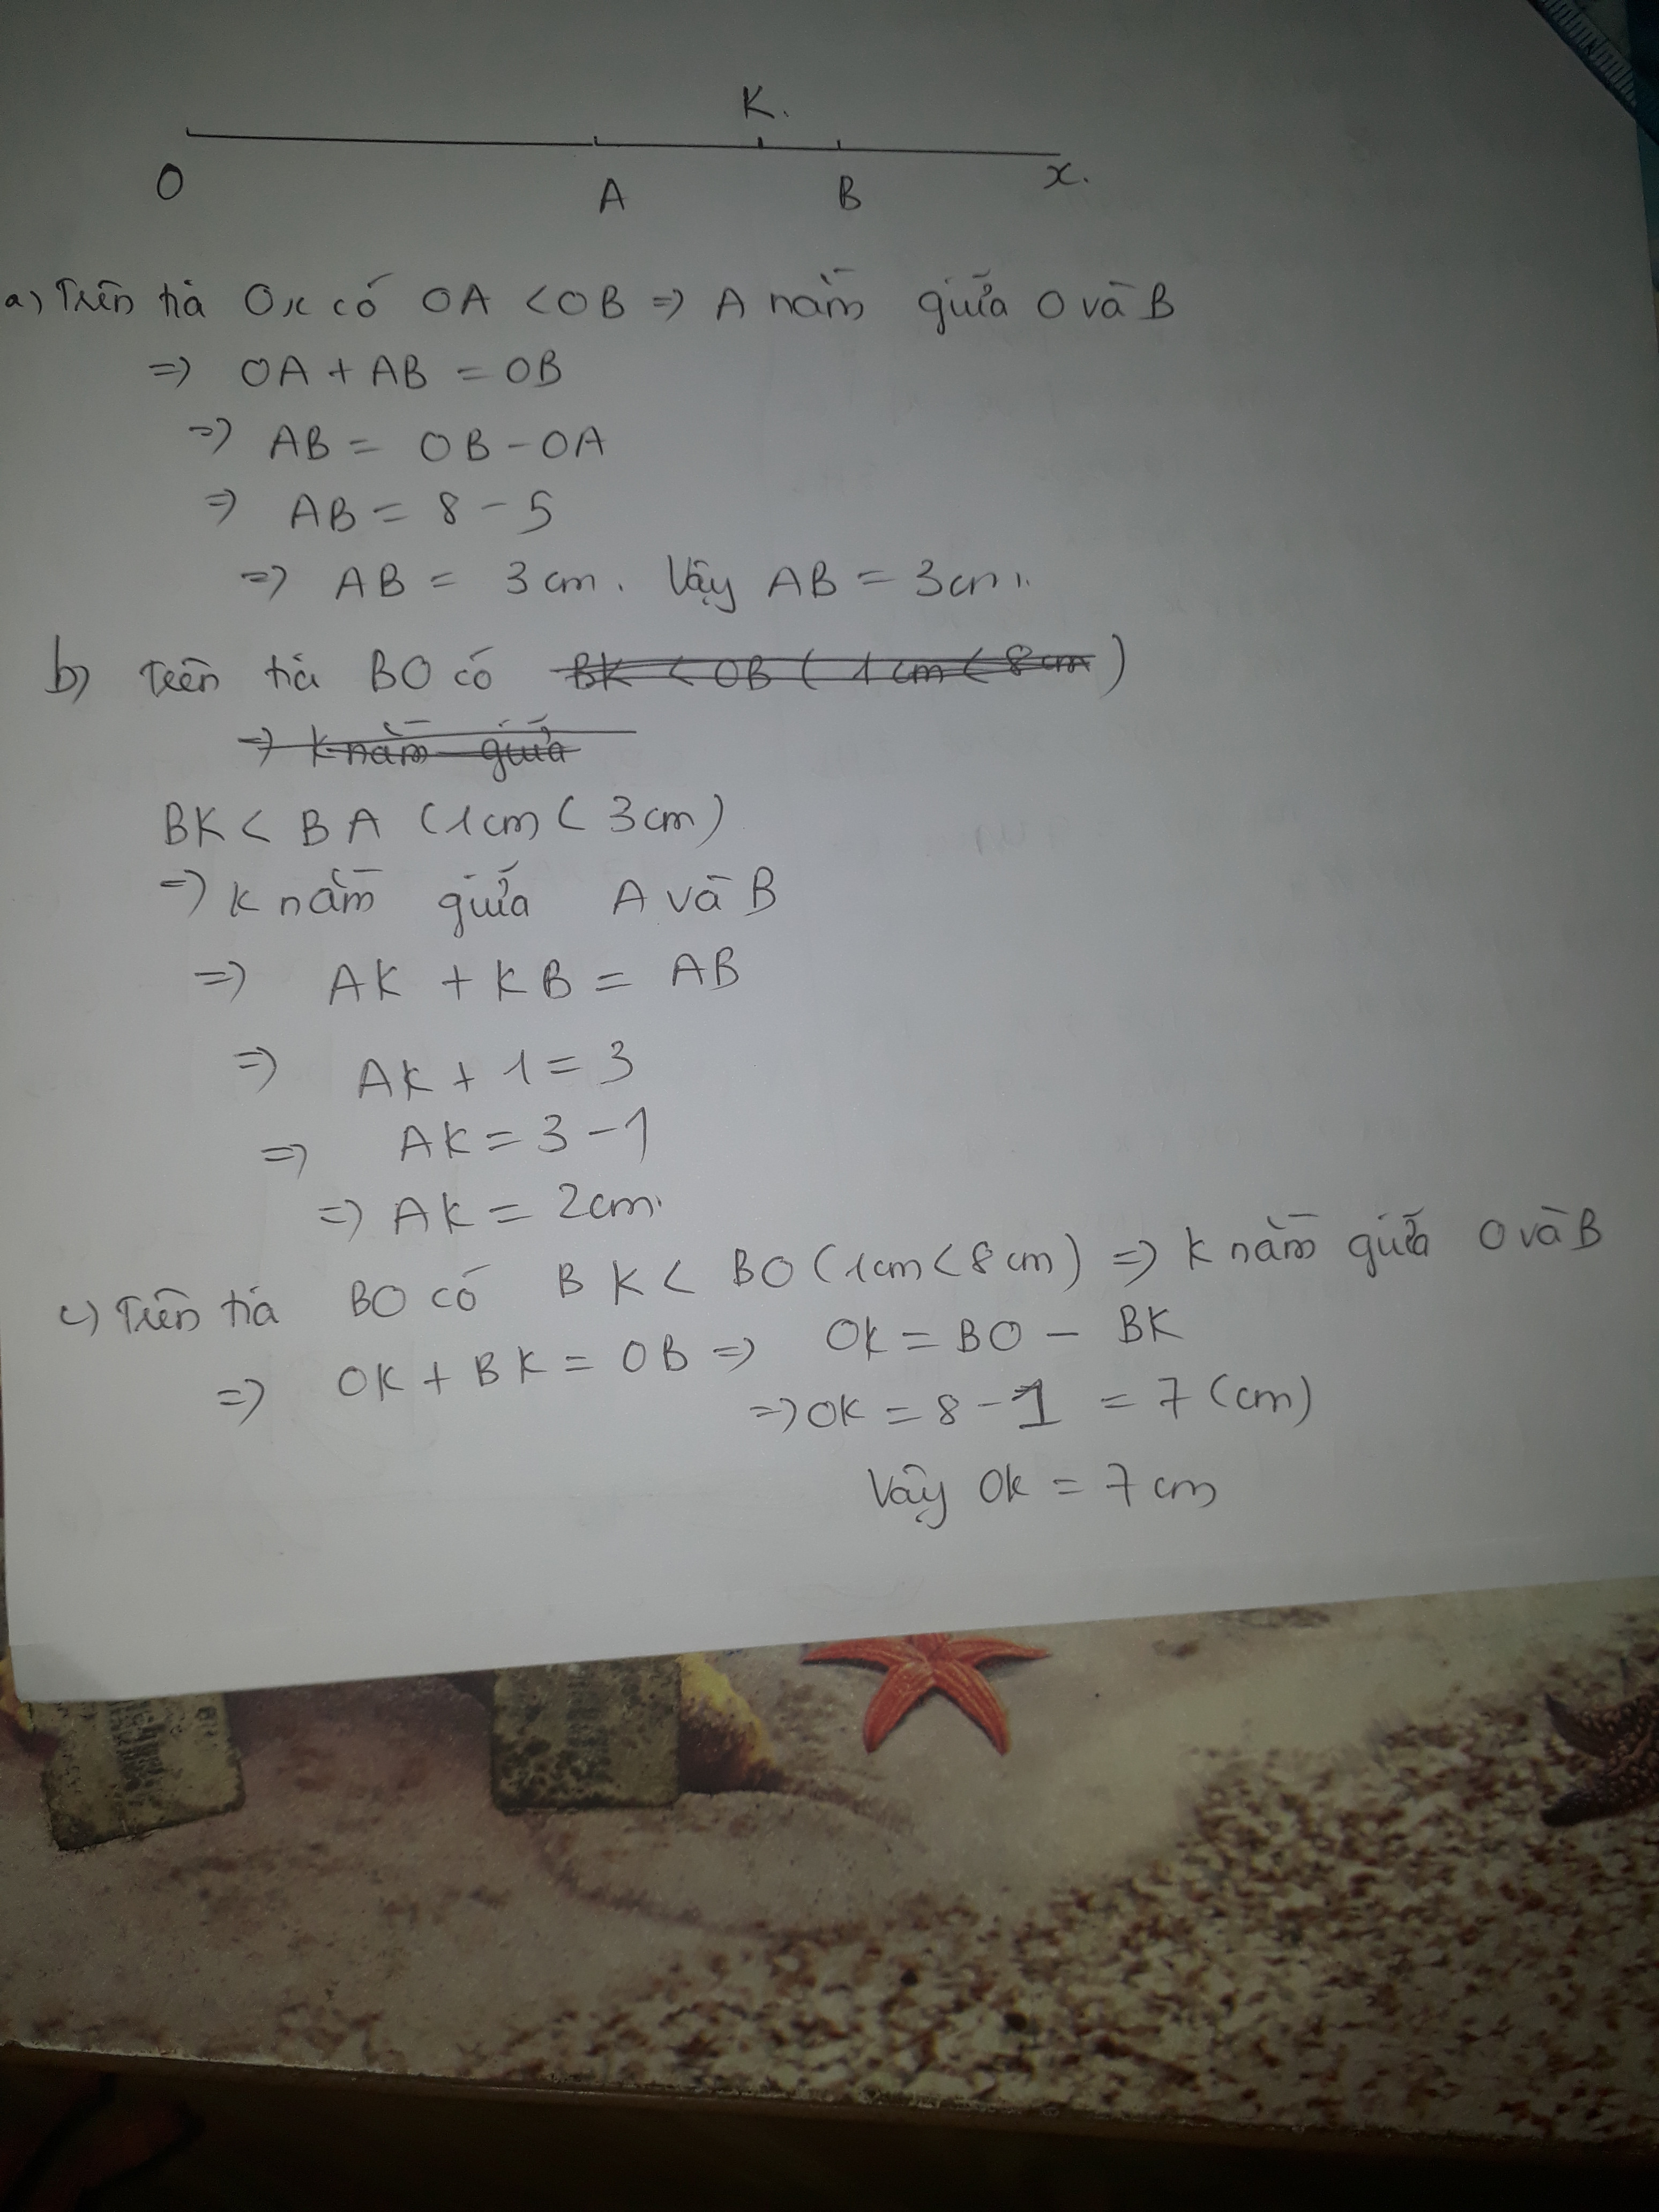 K.
O A B x.
a) Trên tia Ox có OA < OB => A nằm giữa O và B
=> OA + AB = OB
=> AB = OB - OA
=> AB = 8 - 5
=> AB = 3cm. Vậy AB = 3cm.
b) Trên tia BO có BK < OB (1cm < 8cm)
=> K nằm giữa
BK < BA (1cm < 3cm)
=> K nằm giữa A và B
=> AK + KB = AB
=> AK + 1 = 3
=> AK = 3 - 1
=> AK = 2cm.
c) Trên tia BO có BK < BO (1cm < 8cm) => K nằm giữa O và B
=> OK + BK = OB => OK = BO - BK
=> OK = 8 - 1 = 7 (cm)
Vậy OK = 7cm